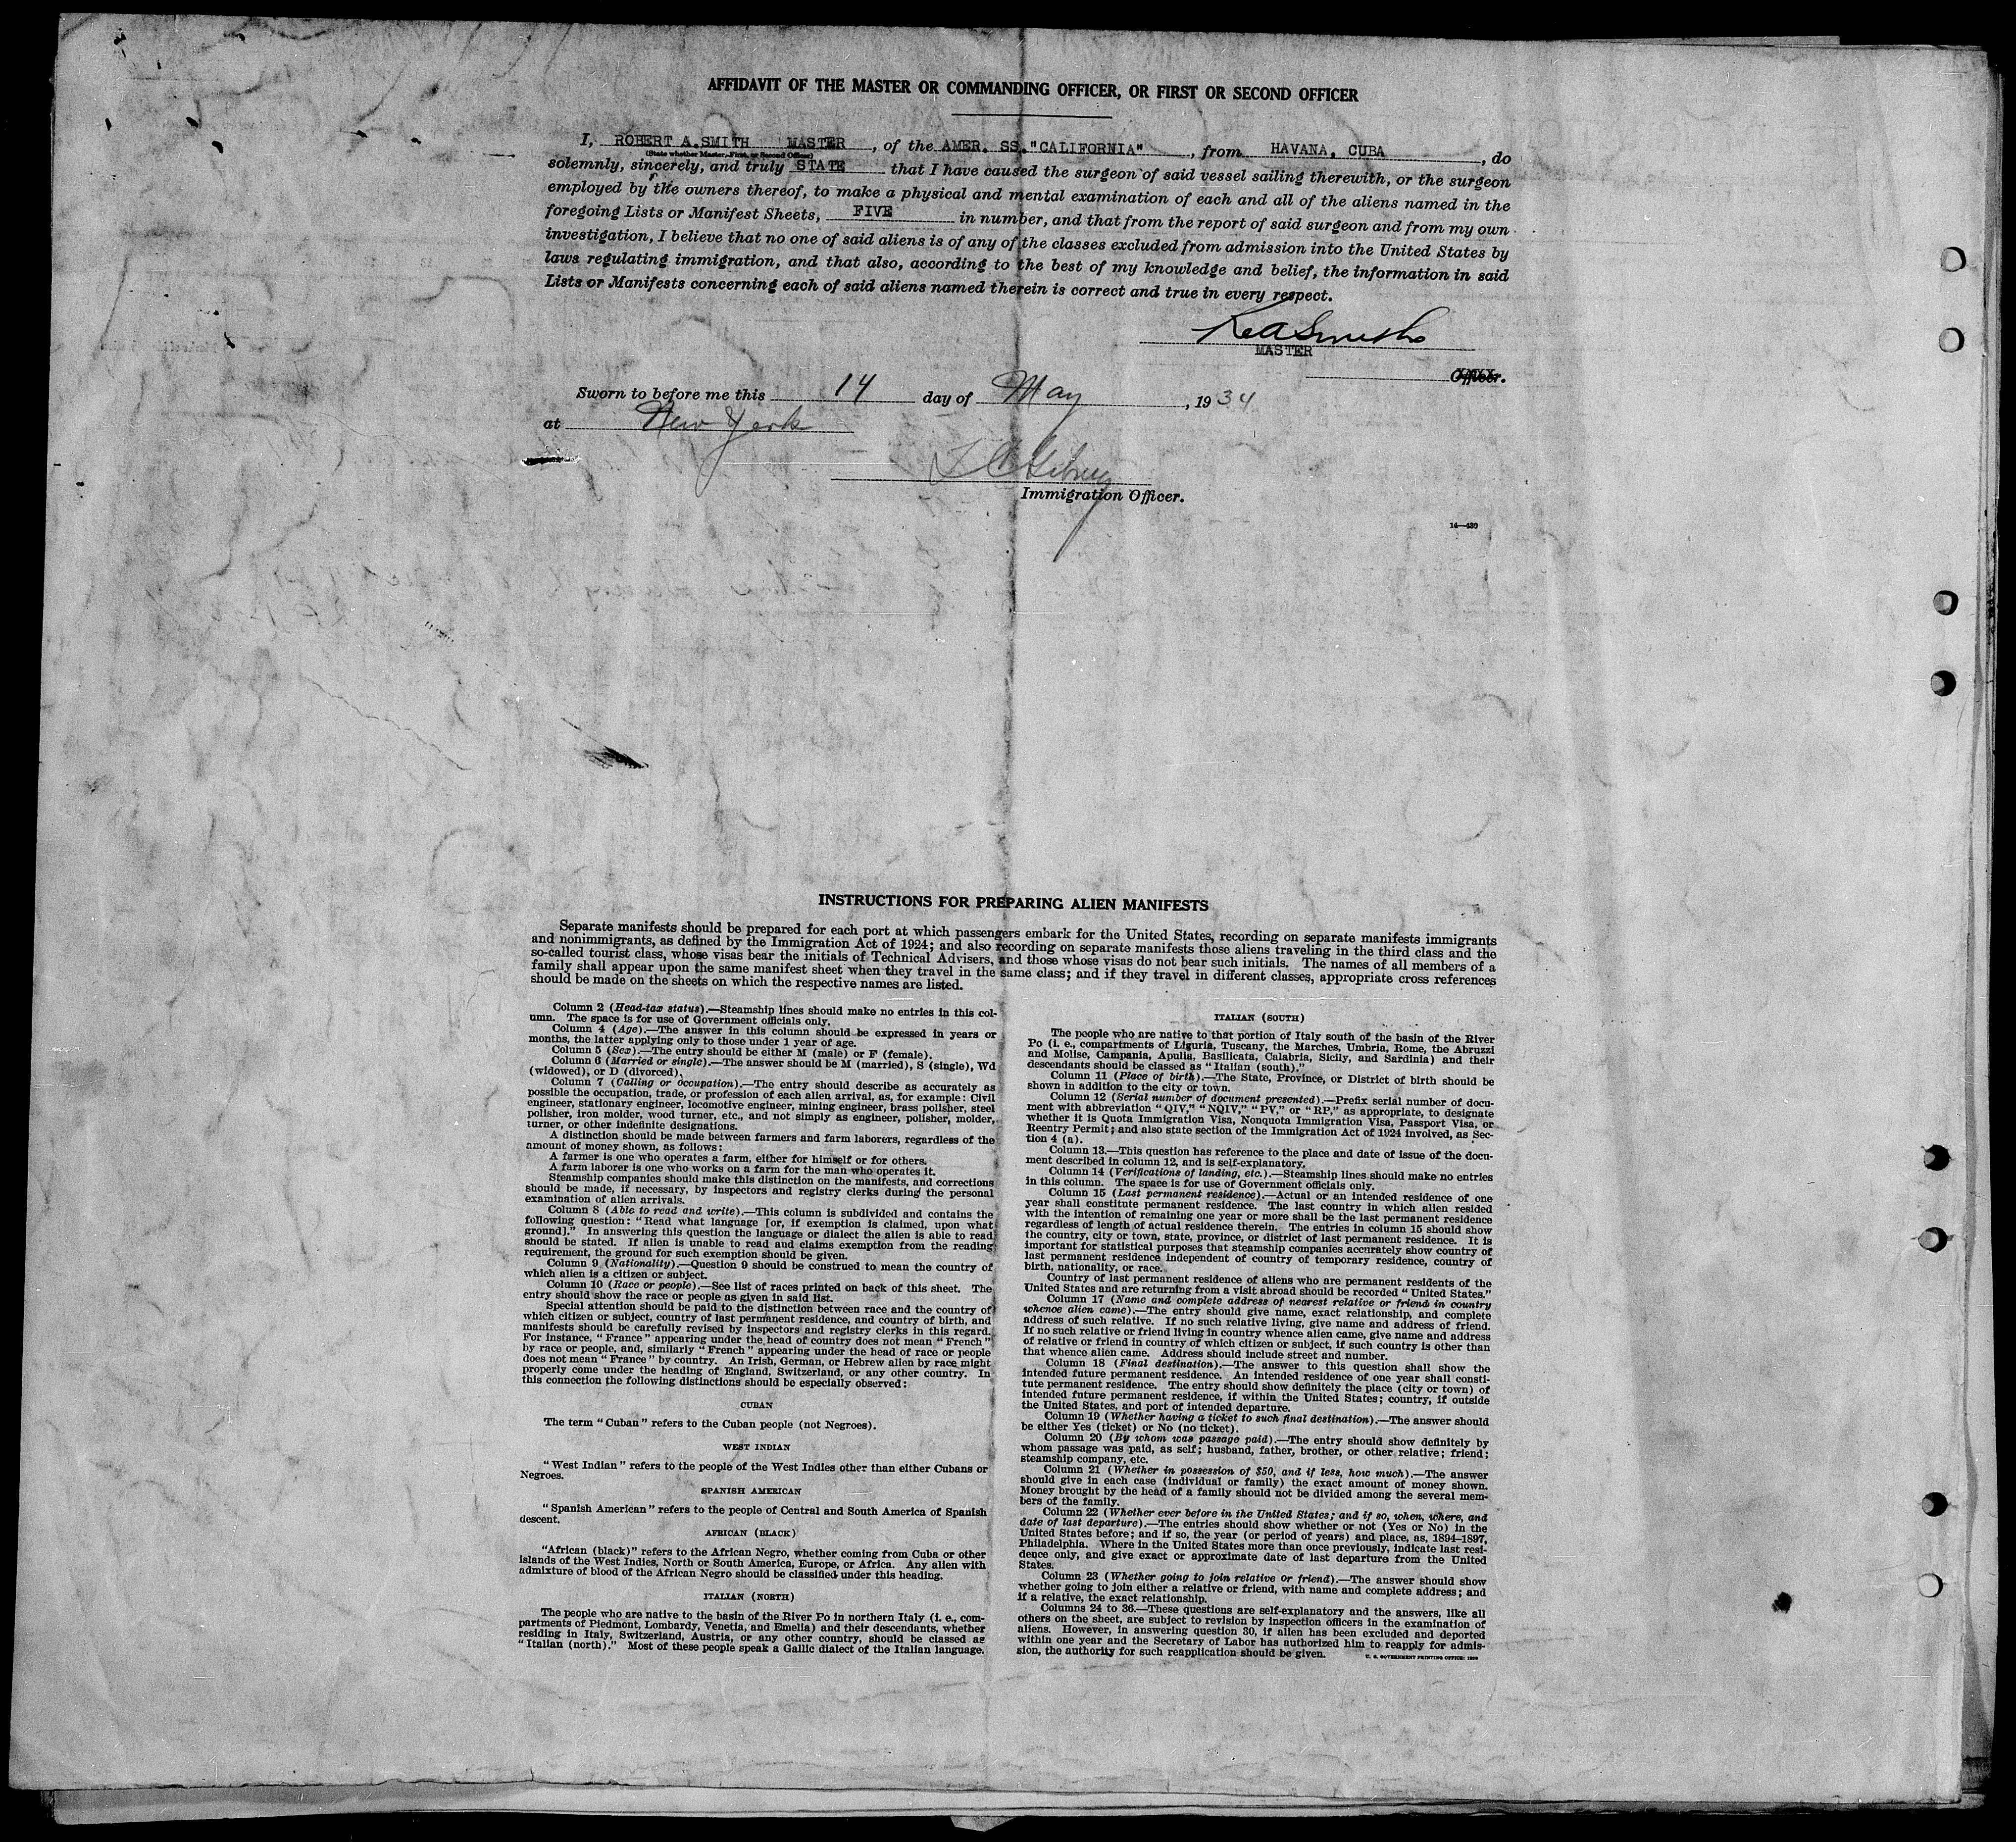 AFFIDAVIT OF THE MASTER OR COMMANDING OFFICER, OR FIRST OR SECOND OFFICER
I, ROBERT A. SMITH MASTER, of the AMER. SS. "CALIFORNIA", from HAVANA, CUBA, do
(State whether Master, First, or Second Officer)
solemnly, sincerely, and truly STATE that I have caused the surgeon of said vessel sailing therewith, or the surgeon
employed by the owners thereof, to make a physical and mental examination of each and all of the aliens named in the
foregoing Lists or Manifest Sheets, FIVE in number, and that from the report of said surgeon and from my own
investigation, I believe that no one of said aliens is of any of the classes excluded from admission into the United States by
laws regulating immigration, and that also, according to the best of my knowledge and belief, the information in said
Lists or Manifests concerning each of said aliens named therein is correct and true in every respect.
R A Smith
MASTER
Officer.
Sworn to before me this 14 day of May, 1934
at New York
Immigration Officer.
14—430
INSTRUCTIONS FOR PREPARING ALIEN MANIFESTS
Separate manifests should be prepared for each port at which passengers embark for the United States, recording on separate manifests immigrants
and nonimmigrants, as defined by the Immigration Act of 1924; and also recording on separate manifests those aliens traveling in the third class and the
so-called tourist class, whose visas bear the initials of Technical Advisers, and those whose visas do not bear such initials. The names of all members of a
family shall appear upon the same manifest sheet when they travel in the same class; and if they travel in different classes, appropriate cross references
should be made on the sheets on which the respective names are listed.
Column 2 (Head-tax status).—Steamship lines should make no entries in this col-
umn. The space is for use of Government officials only.
Column 4 (Age).—The answer in this column should be expressed in years or
months, the latter applying only to those under 1 year of age.
Column 5 (Sex).—The entry should be either M (male) or F (female).
Column 6 (Married or single).—The answer should be M (married), S (single), Wd
(widowed), or D (divorced).
Column 7 (Calling or occupation).—The entry should describe as accurately as
possible the occupation, trade, or profession of each alien arrival, as, for example: Civil
engineer, stationary engineer, locomotive engineer, mining engineer, brass polisher, steel
polisher, iron molder, wood turner, etc., and not simply as engineer, polisher, molder,
turner, or other indefinite designations.
A distinction should be made between farmers and farm laborers, regardless of the
amount of money shown, as follows:
A farmer is one who operates a farm, either for himself or for others.
A farm laborer is one who works on a farm for the man who operates it.
Steamship companies should make this distinction on the manifests, and corrections
should be made, if necessary, by inspectors and registry clerks during the personal
examination of alien arrivals.
Column 8 (Able to read and write).—This column is subdivided and contains the
following question: "Read what language [or, if exemption is claimed, upon what
ground]." In answering this question the language or dialect the alien is able to read
should be stated. If alien is unable to read and claims exemption from the reading
requirement, the ground for such exemption should be given.
Column 9 (Nationality).—Question 9 should be construed to mean the country of
which alien is a citizen or subject.
Column 10 (Race or people).—See list of races printed on back of this sheet. The
entry should show the race or people as given in said list.
Special attention should be paid to the distinction between race and the country of
which citizen or subject, country of last permanent residence, and country of birth, and
manifests should be carefully revised by inspectors and registry clerks in this regard.
For instance, "France" appearing under the head of country does not mean "French"
by race or people, and, similarly "French" appearing under the head of race or people
does not mean "France" by country. An Irish, German, or Hebrew alien by race might
properly come under the heading of England, Switzerland, or any other country. In
this connection the following distinctions should be especially observed:
CUBAN
The term "Cuban" refers to the Cuban people (not Negroes).
WEST INDIAN
"West Indian" refers to the people of the West Indies other than either Cubans or
Negroes.
SPANISH AMERICAN
"Spanish American" refers to the people of Central and South America of Spanish
descent.
AFRICAN (BLACK)
"African (black)" refers to the African Negro, whether coming from Cuba or other
islands of the West Indies, North or South America, Europe, or Africa. Any alien with
admixture of blood of the African Negro should be classified under this heading.
ITALIAN (NORTH)
The people who are native to the basin of the River Po in northern Italy (i. e., com-
partments of Piedmont, Lombardy, Venetia, and Emelia) and their descendants, whether
residing in Italy, Switzerland, Austria, or any other country, should be classed as
"Italian (north)." Most of these people speak a Gallic dialect of the Italian language.
ITALIAN (SOUTH)
The people who are native to that portion of Italy south of the basin of the River
Po (i. e., compartments of Liguria, Tuscany, the Marches, Umbria, Rome, the Abruzzi
and Molise, Campania, Apulia, Basilicata, Calabria, Sicily, and Sardinia) and their
descendants should be classed as "Italian (south)."
Column 11 (Place of birth).—The State, Province, or District of birth should be
shown in addition to the city or town.
Column 12 (Serial number of document presented).—Prefix serial number of docu-
ment with abbreviation "QIV," "NQIV," "PV," or "RP," as appropriate, to designate
whether it is Quota Immigration Visa, Nonquota Immigration Visa, Passport Visa, or
Reentry Permit; and also state section of the Immigration Act of 1924 involved, as Sec-
tion 4 (a).
Column 13.—This question has reference to the place and date of issue of the docu-
ment described in column 12, and is self-explanatory.
Column 14 (Verifications of landing, etc.).—Steamship lines should make no entries
in this column. The space is for use of Government officials only.
Column 15 (Last permanent residence).—Actual or an intended residence of one
year shall constitute permanent residence. The last country in which alien resided
with the intention of remaining one year or more shall be the last permanent residence
regardless of length of actual residence therein. The entries in column 15 should show
the country, city or town, state, province, or district of last permanent residence. It is
important for statistical purposes that steamship companies accurately show country of
last permanent residence independent of country of temporary residence, country of
birth, nationality, or race.
Country of last permanent residence of aliens who are permanent residents of the
United States and are returning from a visit abroad should be recorded "United States."
Column 17 (Name and complete address of nearest relative or friend in country
whence alien came).—The entry should give name, exact relationship, and complete
address of such relative. If no such relative living, give name and address of friend.
If no such relative or friend living in country whence alien came, give name and address
of relative or friend in country of which citizen or subject, if such country is other than
that whence alien came. Address should include street and number.
Column 18 (Final destination).—The answer to this question shall show the
intended future permanent residence. An intended residence of one year shall consti-
tute permanent residence. The entry should show definitely the place (city or town) of
intended future permanent residence, if within the United States; country, if outside
the United States, and port of intended departure.
Column 19 (Whether having a ticket to such final destination).—The answer should
be either Yes (ticket) or No (no ticket).
Column 20 (By whom was passage paid).—The entry should show definitely by
whom passage was paid, as self; husband, father, brother, or other relative; friend;
steamship company, etc.
Column 21 (Whether in possession of $50, and if less, how much).—The answer
should give in each case (individual or family) the exact amount of money shown.
Money brought by the head of a family should not be divided among the several mem-
bers of the family.
Column 22 (Whether ever before in the United States; and if so, when, where, and
date of last departure).—The entries should show whether or not (Yes or No) in the
United States before; and if so, the year (or period of years) and place, as, 1894–1897,
Philadelphia. Where in the United States more than once previously, indicate last resi-
dence only, and give exact or approximate date of last departure from the United
States.
Column 23 (Whether going to join relative or friend).—The answer should show
whether going to join either a relative or friend, with name and complete address; and
if a relative, the exact relationship.
Columns 24 to 36.—These questions are self-explanatory and the answers, like all
others on the sheet, are subject to revision by inspection officers in the examination of
aliens. However, in answering question 30, if alien has been excluded and deported
within one year and the Secretary of Labor has authorized him to reapply for admis-
sion, the authority for such reapplication should be given.
U. S. GOVERNMENT PRINTING OFFICE: